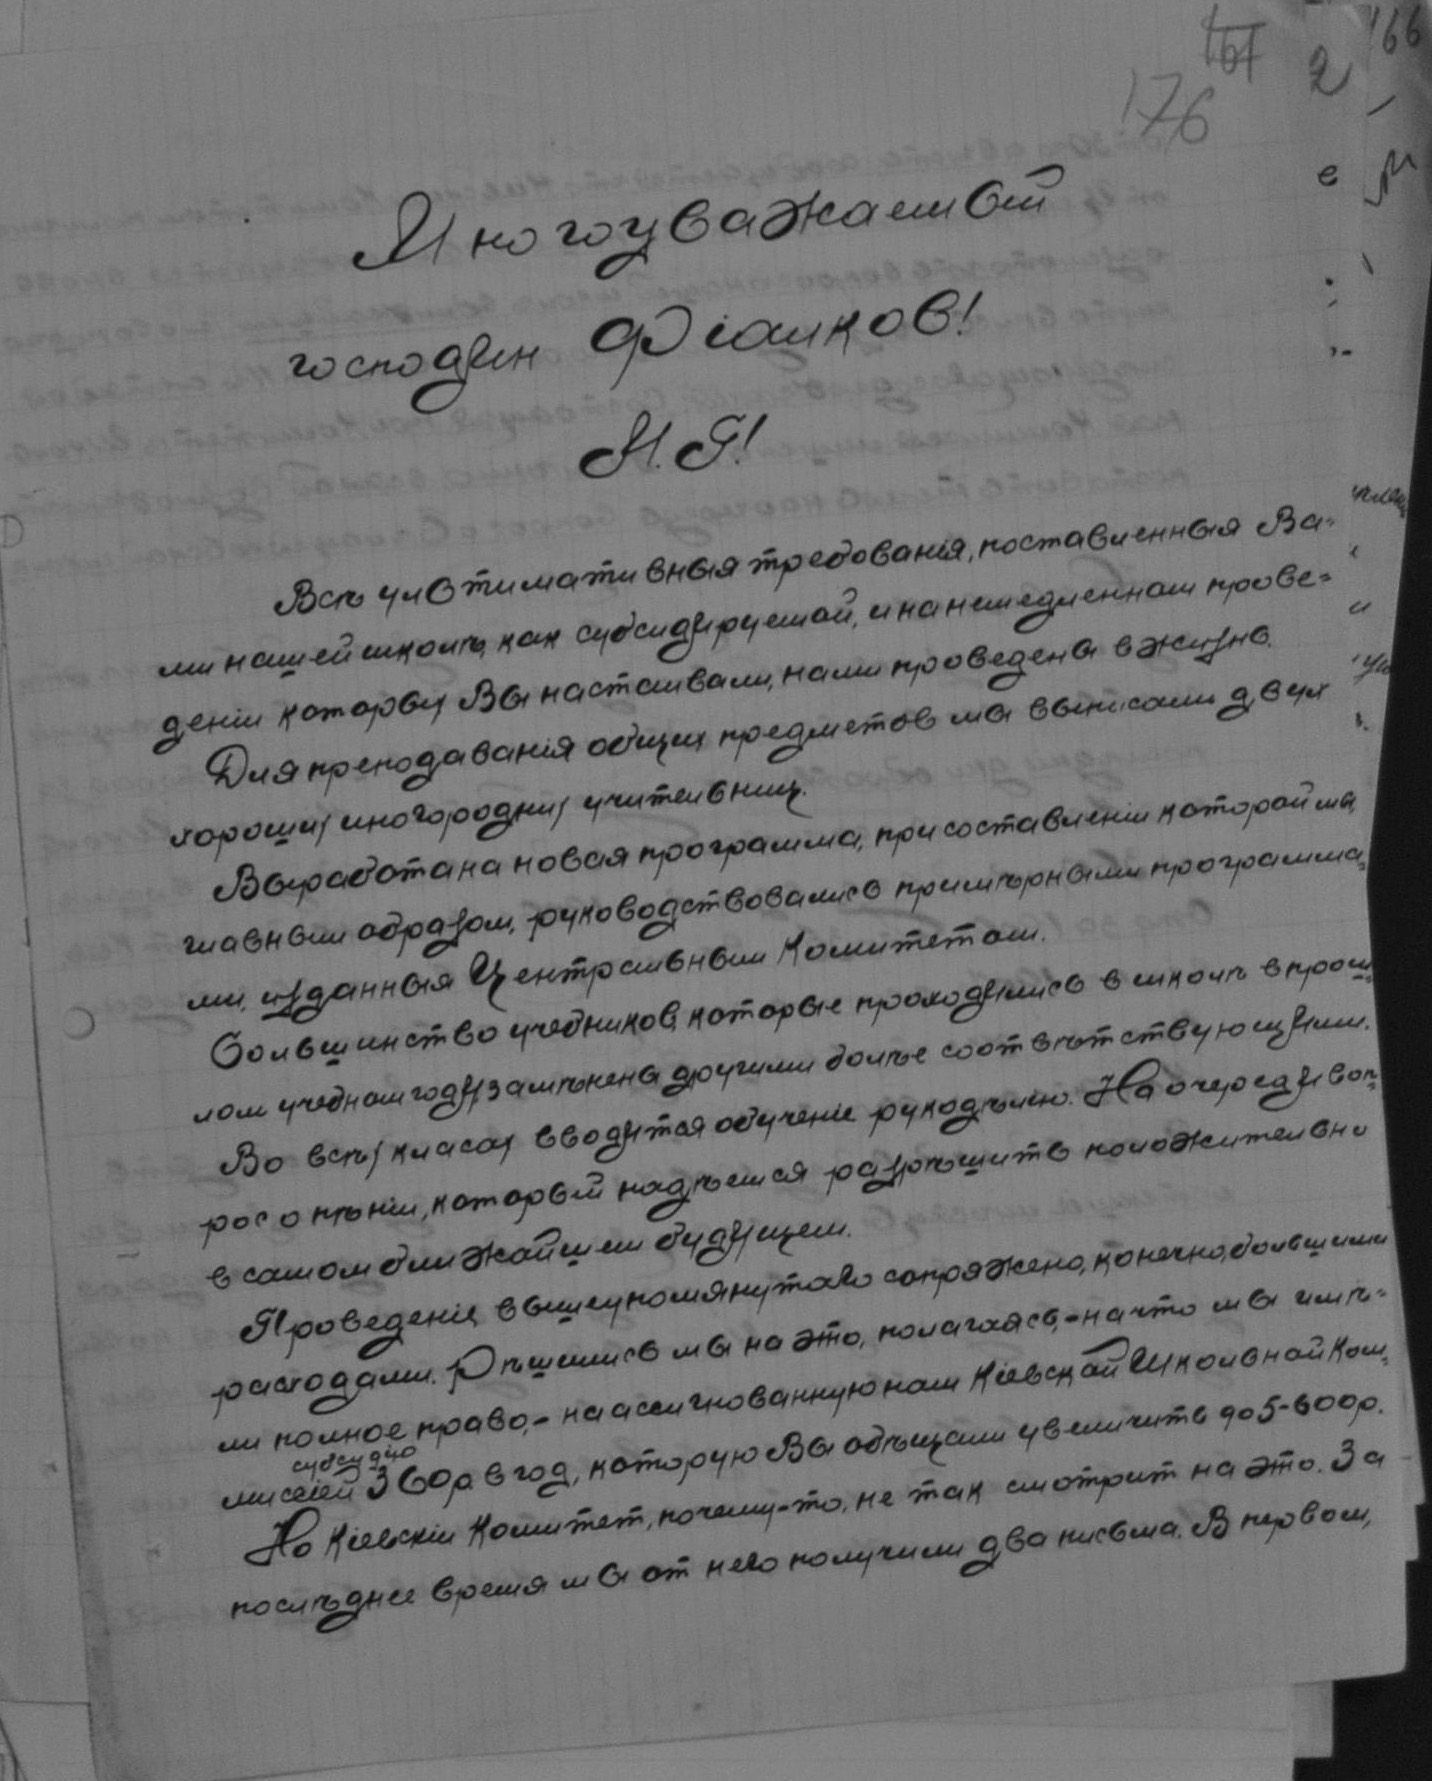 166
161 2
176
Многоуважаемый
господин Фіалков!
М. Г.!
Всѣ ультимативныя требованія, поставленныя Ва-
ми нашей школѣ, как субсидируемой, и на немедленном прове-
деніи которых Вы настаивали, нами проведены в жизнь.
Для преподаванія общих предметов мы выписали двух
хороших иногородних учительниц.
Выработана новая программа, при составленіи которой мы,
главным образом, руководствовались примѣрными программа-
ми, изданныя Центральным Комитетом.
Большинство учебников, которые проходились в школѣ в прош-
лом учебном году, замѣнены другими болѣе соотвѣтствующими.
Во всѣх класах вводится обученіе рукодѣлію. На очереди воп-
рос о пѣніи, который надѣемся разрѣшить положительно
в самом ближайшем будущем.
Проведеніе вышеупомянутаго сопряжено, конечно, большими
расходами. Рѣшились мы на это, полагаясь, - на что мы имѣ-
ли полное право, - на ассигнованную нам Кіевской Школьной Ком-
миссіей субсидію 360р. в год, которую Вы обѣщали увеличить до 5-600р.
Но Кіевскій Комитет, почему-то, не так смотрит на это. За
послѣднее время мы от него получили два письма. В первом,